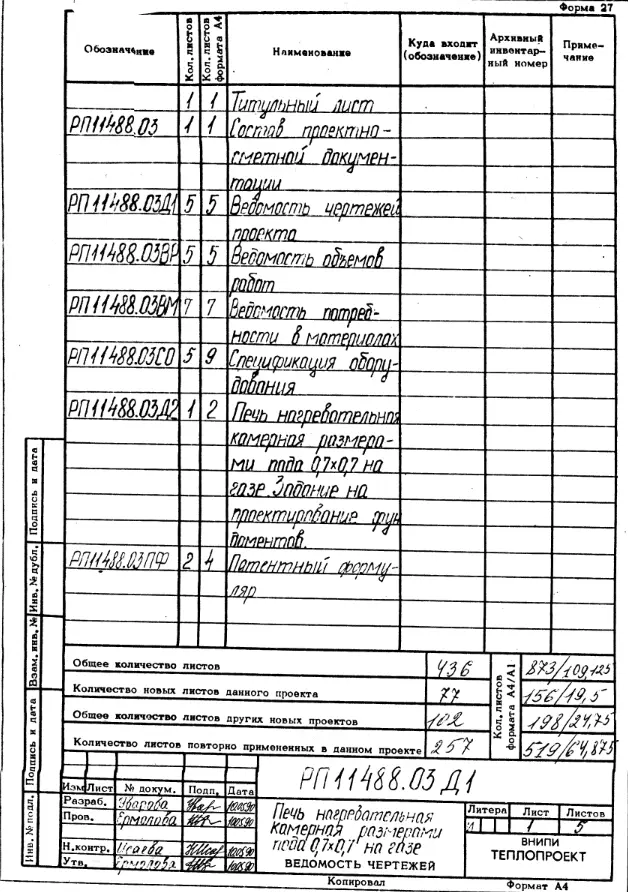 Форма 27
Обозначение Кол. листов Кол. листов формата А4 Наименование Куда входит (обозначение) Архивный инвентарный номер Примечание
1 1 Титульный лист
РП11488.03 1 1 Состав проектно-
сметной докумен-
тации
РП11488.03Д1 5 5 Ведомость чертежей
проекта
РП11488.03ВР 5 5 Ведомость объемов
работ
РП11488.03ВМ 7 7 Ведомость потреб-
ности в материалах
РП11488.03СО 5 9 Спецификация обору-
дования
РП11488.03Д2 1 2 Печь нагревательная
камерная размера-
ми пода 0,7х0,7 на
газе. Задание на
проектирование фун
даментов.
РП11488.03ПФ 2 4 Патентный форму-
ляр
Общее количество листов 436 Кол. листов формата А4/А1 873/109,125
Количество новых листов данного проекта 77 156/19,5
Общее количество листов других новых проектов 102 198/24,75
Количество листов повторно примененных в данном проекте 257 519/64,875
Подпись и дата
Инв. № дубл.
Взам. инв. №
Подпись и дата
Инв. № подл.
РП11488.03 Д1
Изм Лист № докум. Подп. Дата
Разраб. Уварова
Пров. Ермолова
Н.контр. Исаева
Утв. Ермолова
Печь нагревательная
камерная размерами
пода 0,7х0,7 на газе
ВЕДОМОСТЬ ЧЕРТЕЖЕЙ
Литера Лист Листов
И 1 5
ВНИПИ
ТЕПЛОПРОЕКТ
Копировал Формат А4